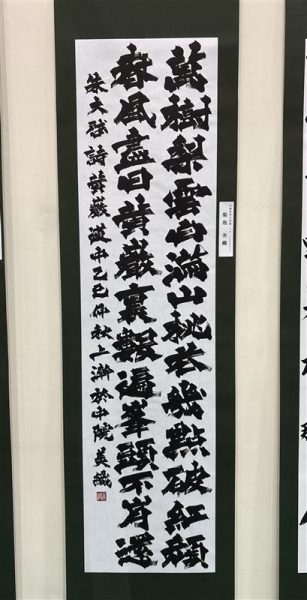 萬樹梨雲白滿山桃花幾點破紅顏
春風盡日黃巖裏遍峯頭不肯還
朱大詩黃巖道中乙巳仲秋上澣於中院 美織
菊池 美織